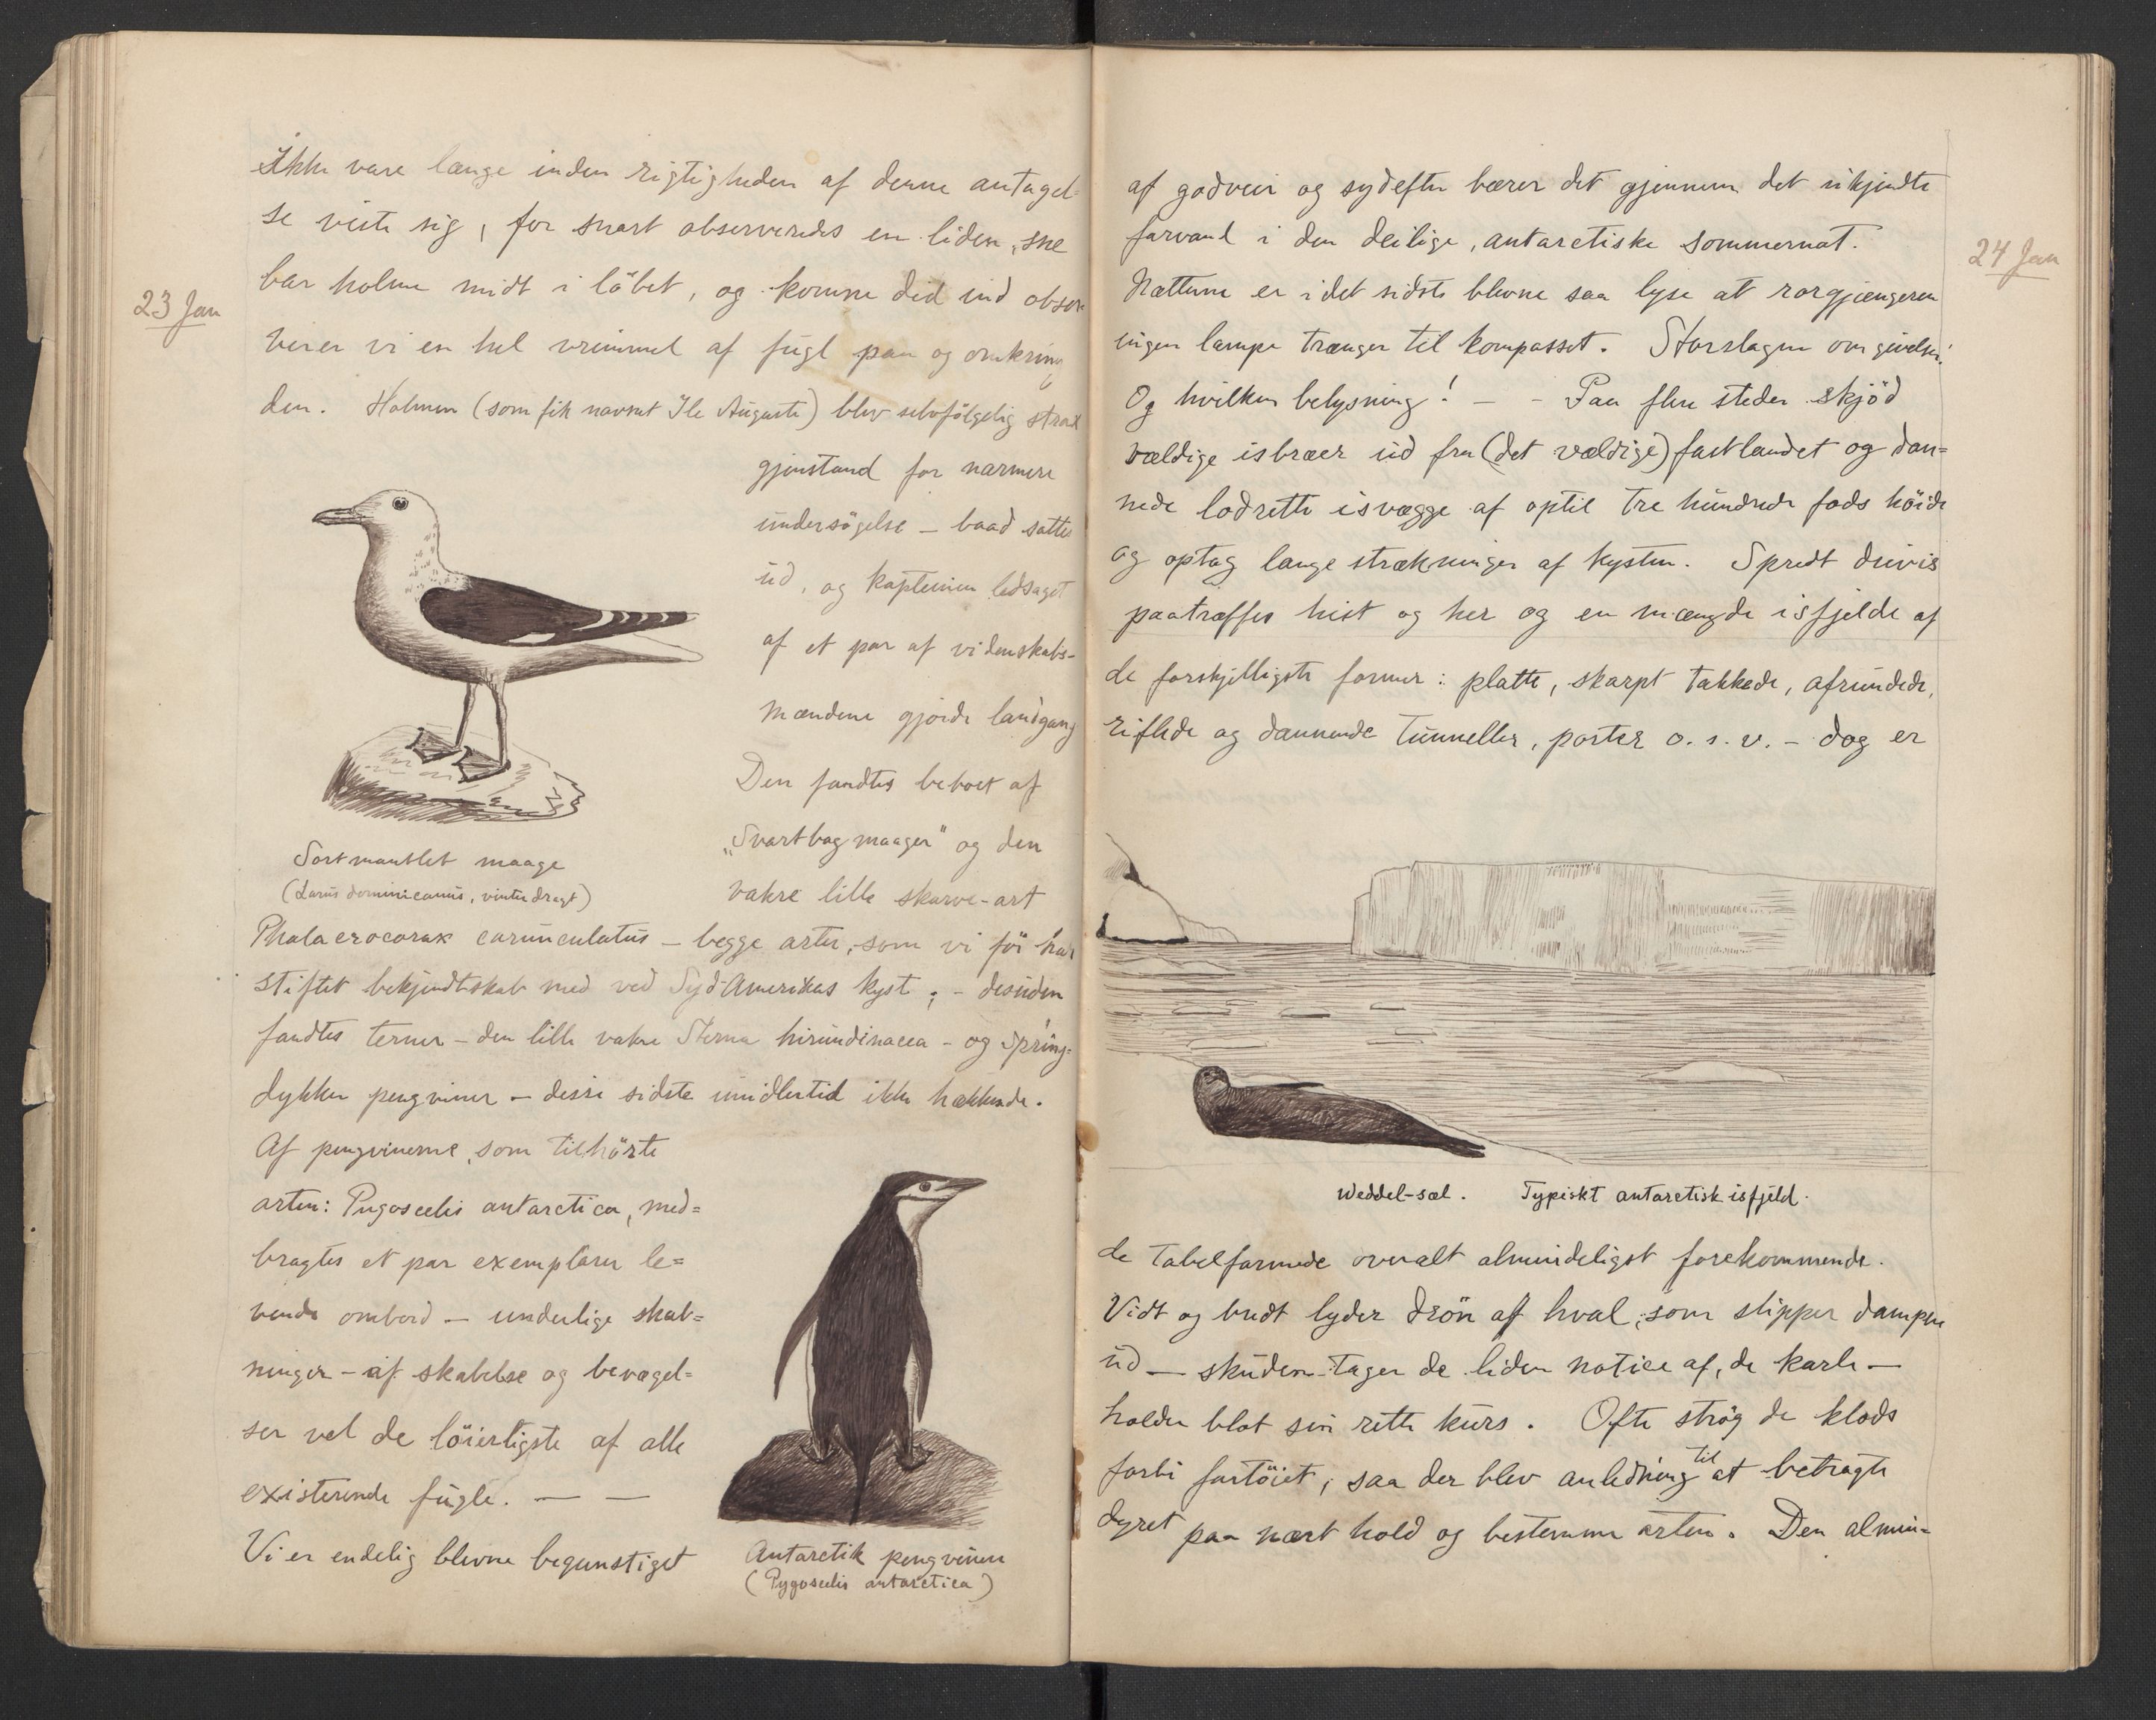 Ikke vare længe inden rigtigheden af denne antagel-
se viste sig, for snart observeredes en liden, sne
bar holme midt i löbet, og komne did ind obser-
verer vi en hel vrimmel af fugl paa og omkring
23 Jan
den. Holmen (som fik navnet Ile Auguste) blev selvfölgelig strax
gjenstand for nærmere
undersögelse – baad sattes
ud, og kapteinen ledsaget
af et par af videnskabs-
mændene gjorde landgang
Den fandtes beboet af
„Svartbag maager" og den
vakre lille skarve-art
Sortmantlet maage
(Larus dominicanus, vinterdragt)
Phalacrocorax carunculatus – begge arter, som vi för har
stiftet bekjendtskab med ved Syd-Amerikas kyst; – desuden
fandtes terner – den lille vakre Sterna hirundinacea – og Spring-
dykker pengviner – disse sidste imidlertid ikke hækkende.
Af pengvinerne, som tilhörte
arten: Pygoscelis antarctica, med=
bragtes et par exemplarer le=
vende ombord – underlige skab=
ninger – af skabelse og bevægel=
ser vel de löierligste af alle
existerende fugle. — —
Vi er endelig blevne begunstiget
Antarctik pengvinen
(Pygoscelis antarctica)
af godveir og sydefter bærer det gjennem det ukjendte
farvand i den deilige, antarctiske sommernat.
24 Jan
Nætterne er i det sidste blevne saa lyse at rorgjængeren
ingen lampe trænger til kompasset. Storslagne omgivelser!
Og hvilken belysning! – – Paa flere steder skjöd
vældige isbræer ud fra (det vældige) fastlandet og dan=
nede lodrette isvægge af optil tre hundrede fods höide
og optog lange strækninger af kysten. Spredt drivis
paatræffes hist og her og en mængde isfjelde af
de forskjelligste former: platte, skarpt takkede, afrundede,
riflede og dannende tunneller, porter o. s. v. – dog er
Weddel-sæl. Typiskt antarctisk isfjeld.
de tabelformede overalt almindeligst forekommende.
Vidt og bredt lyder drön af hval, som slipper dampen
ud — skuden tager de liden notice af, de karle —
holder blot sin rette kurs. Ofte strög de klods
forbi fartöiet, saa der blev anledning til at betragte
dyret paa nært hold og bestemme arten. Den almin=